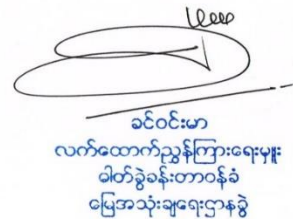 ခင်ဝင်းမာ
လက်ထောက်ညွှန်ကြားရေးမှူး
ဓါတ်ခွဲခန်းတာဝန်ခံ
မြေအသုံးချရေးဌာနခွဲ